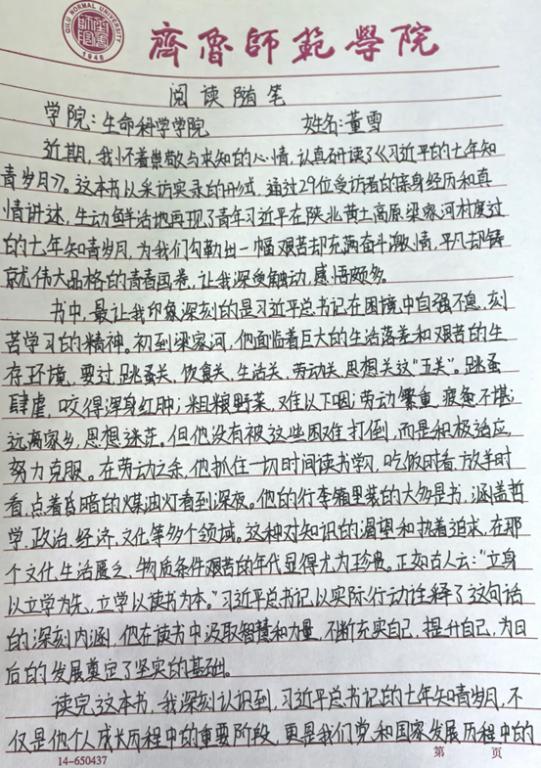 QILU NORMAL UNIVERSITY
1948
齊魯師範學院
阅读随笔
学院:生命科学学院 姓名:董雪
近期,我怀着崇敬与求知的心情,认真研读了《习近平的七年知
青岁月》。这本书以采访实录的形式,通过29位受访者的亲身经历和真
情讲述,生动鲜活地再现了青年习近平在陕北黄土高原梁家河村度过
的七年知青岁月,为我们勾勒出一幅艰苦却充满奋斗激情,平凡却铸
就伟大品格的青春画卷,让我深受触动,感悟颇多。
书中,最让我印象深刻的是习近平总书记在困境中自强不息,刻
苦学习的精神。初到梁家河,他面临着巨大的生活落差和艰苦的生
存环境,要过跳蚤关、饮食关、生活关、劳动关、思想关这“五关”。跳蚤
肆虐,咬得浑身红肿;粗粮野菜,难以下咽;劳动繁重,疲惫不堪;
远离家乡,思想迷茫。但他没有被这些困难打倒,而是积极适应,
努力克服。在劳动之余,他抓住一切时间读书学习,吃饭时看,放羊时
看,点着昏暗的煤油灯看到深夜。他的行李箱里装的大多是书,涵盖哲
学、政治、经济、文化等多个领域。这种对知识的渴望和执着追求,在那
个文化生活匮乏、物质条件艰苦的年代显得尤为珍贵。正如古人云:“立身
以立学为先,立学以读书为本。”习近平总书记以实际行动诠释了这句话
的深刻内涵,他在读书中汲取智慧和力量,不断充实自己,提升自己,为日
后的发展奠定了坚实的基础。
读完这本书,我深刻认识到,习近平总书记的七年知青岁月,不
仅是他个人成长历程中的重要阶段,更是我们党和国家发展历程中的
14-650437 第 页